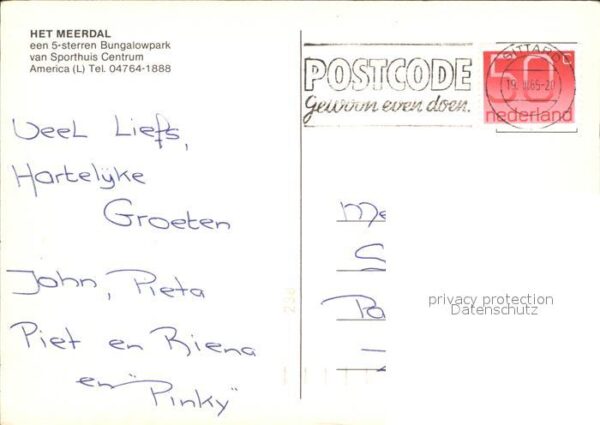 HET MEERDAL
een 5-sterren Bungalowpark
van Sporthuis Centrum
America (L) Tel. 04764-1888
POSTCODE
Gewoon even doen.
SITTARD
50 c
nederland
Veel Liefs,
Hartelijke
Groeten
John, Pieta
Piet en Riena
en "Pinky"
Me
Pa
privacy protection
Datenschutz